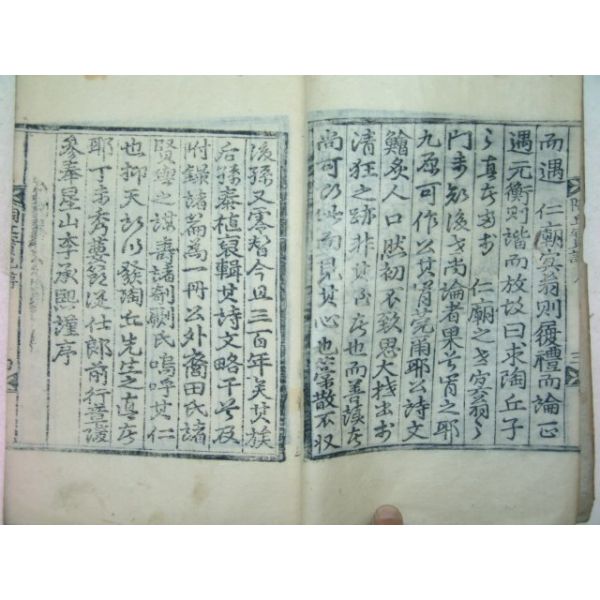 而遇 仁廟實翁則履禮而論正
遇元衡則諧而放故曰求陶丘子
之真於 仁廟之 實翁之
門未知後之尚論者果 耶
九原可作公其肯莞甫耶公詩文
鱠炙人口然初不致思大
清狂之跡非其 也而善 者
尚可以此而見其心也 散不收
後孫又零替今且三百年矣其族
后孫泰植裒輯其詩文略干 及
附錄諸篇為一冊公外裔田氏諸
賢與之謀壽諸剞劂氏嗚呼其仁
也抑天所以發陶丘先生之真於
耶丁未秀葽節從仕郎前行章陵
參奉星山李承熙謹序